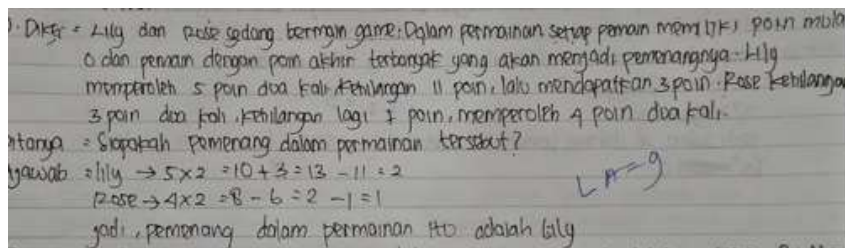 Diket = Lily dan Rose sedang bermain game. Dalam permainan setiap pemain memiliki poin mula
0 dan pemain dengan poin akhir terbanyak yang akan menjadi pemenangnya. Lily
memperoleh 5 poin dua kali, kehilangan 11 poin, lalu mendapatkan 3 poin. Rose kehilanga
3 poin dua kali, kehilangan lagi 1 poin, memperoleh 4 poin dua kali.
itanya = Siapakah pemenang dalam permainan tersebut?
yawab = lily → 5 x 2 = 10 + 3 = 13 - 11 = 2
Rose → 4 x 2 = 8 - 6 = 2 - 1 = 1
LA = 9
jadi, pemenang dalam permainan itu adalah lily